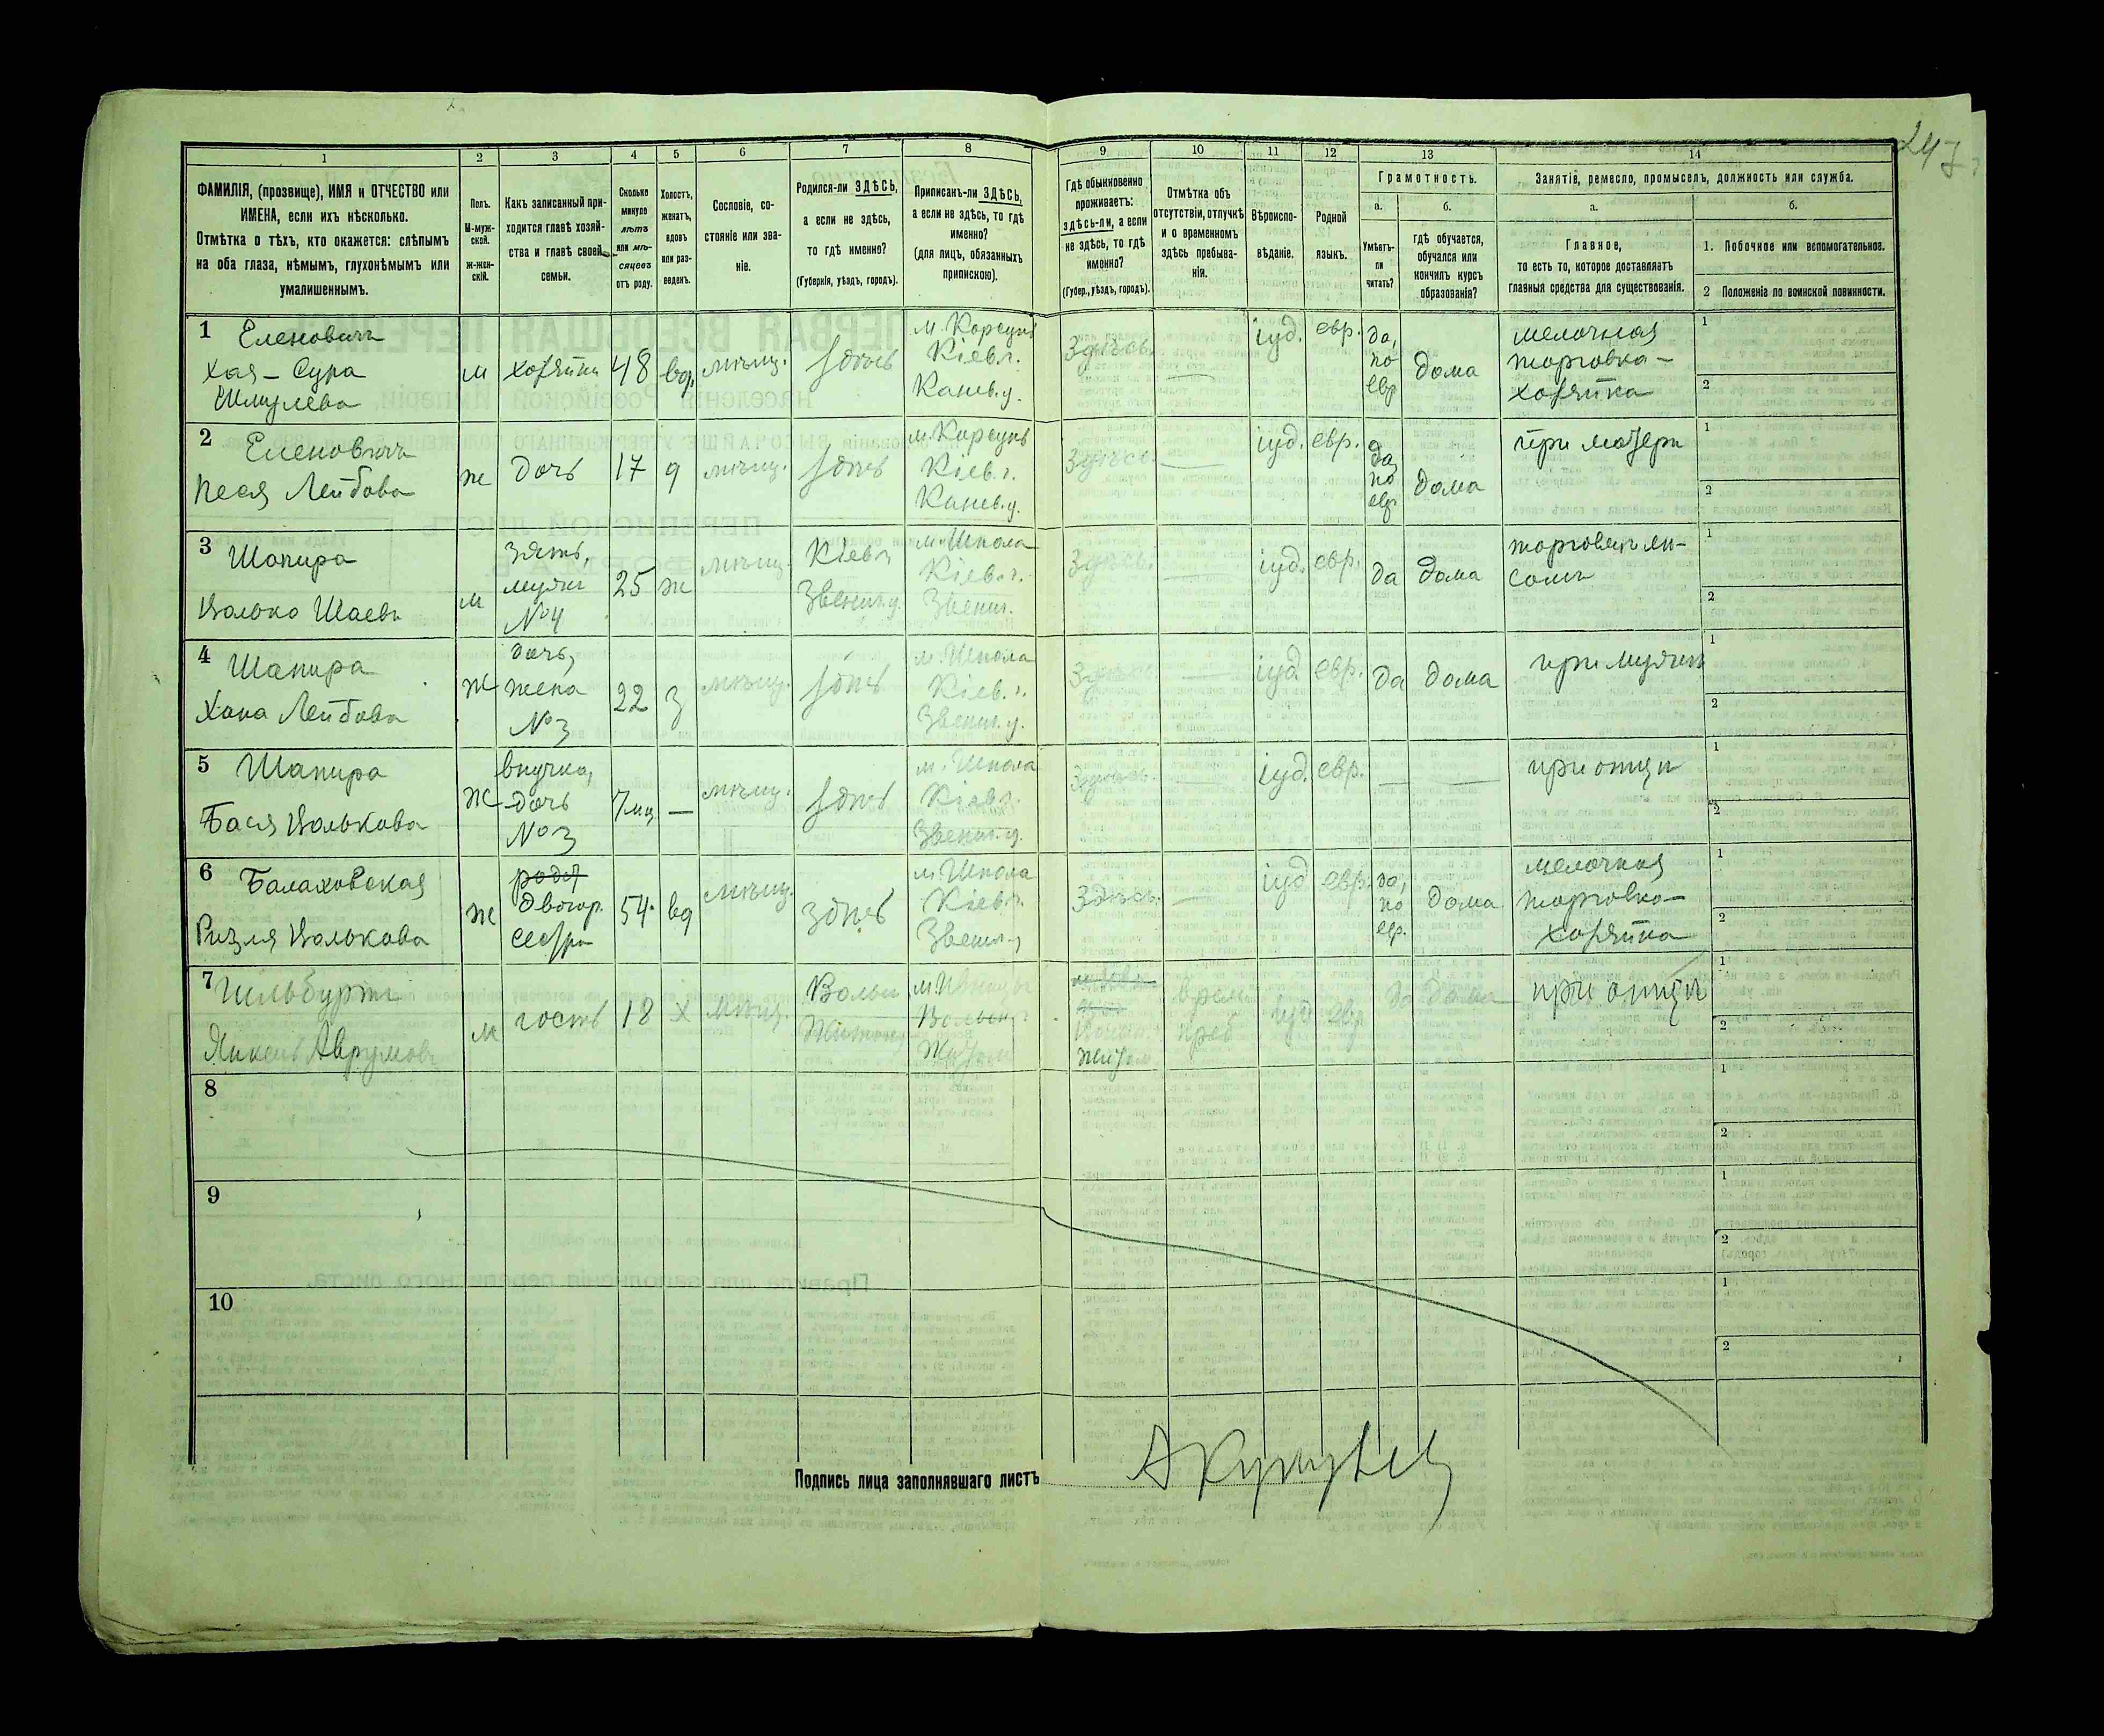 247
1
2
3
4
5
6
7
8
9
10
11
12
13
14
ФАМИЛІЯ, (прозвище), ИМЯ и ОТЧЕСТВО или
ИМЕНА, если ихъ нѣсколько.
Отмѣтка о тѣхъ, кто окажется: слѣпымъ
на оба глаза, нѣмымъ, глухонѣмымъ или
умалишеннымъ.
Полъ.
М-муж-
ской.
ж-жен-
скій.
Какъ записанный при-
ходится главѣ хозяй-
ства и главѣ своей
семьи.
Сколько
минуло
лѣтъ
или мѣ-
сяцевъ
отъ роду.
Холостъ,
женатъ,
вдовъ
или раз-
веденъ.
Сословіе, со-
стояніе или зва-
ніе.
Родился-ли ЗДѢСЬ,
а если не здѣсь,
то гдѣ именно?
(Губернія, уѣздъ, городъ).
Приписанъ-ли ЗДѢСЬ,
а если не здѣсь, то гдѣ
именно?
(для лицъ, обязанныхъ
припискою).
Гдѣ обыкновенно
проживаетъ:
здѣсь-ли, а если
не здѣсь, то гдѣ
именно?
(Губер., уѣздъ, городъ).
Отмѣтка объ
отсутствіи, отлучкѣ
и о временномъ
здѣсь пребыва-
ніи.
Вѣроиспо-
вѣданіе.
Родной
языкъ.
Грамотность.
а.
Умѣетъ-
ли
читать?
б.
гдѣ обучается,
обучался или
кончилъ курсъ
образованія?
Занятіе, ремесло, промыселъ, должность или служба.
а.
Главное,
то есть то, которое доставляетъ
главныя средства для существованія.
б.
1. Побочное или вспомогательное.
2 Положенія по воинской повинности.
1 Еленовичъ
Хая - Сура
Шмулева
м
хозяйка
48
вд.
мѣщ.
здѣсь
м. Корсунь
Кіев. г.
Канев. у.
Здѣсь.
—
іуд.
евр.
да,
по
евр
дома
мелочная
торговка -
хозяйка
1
2
2 Еленовичъ
Песя Лейбова
ж
дочь
17
д
мѣщ.
здѣсь
м. Корсунь
Кіев. г.
Канев. у.
Здѣсь.
—
іуд.
евр.
да,
по
евр
дома
при матери
1
2
3 Шапира
Волько Шаевъ
м
зять,
мужъ
№ 4
25
ж
мѣщ.
Кіев. г.
Звениг. у.
м. Шпола
Кіев. г.
Звениг.
Здѣсь.
—
іуд.
евр.
да
дома
торговецъ лѣ-
сомъ
1
2
4 Шапира
Хана Лейбова
ж
дочь,
жена
№ 3
22
з
мѣщ.
здѣсь
м. Шпола
Кіев. г.
Звениг. у.
Здѣсь.
—
іуд
евр.
да
дома
при мужѣ
1
2
5 Шапира
Бася Волькова
ж
внучка,
дочь
№ 3
7 мц
—
мѣщ.
здѣсь
м. Шпола
Кіев. г.
Звениг. у.
Здѣсь.
іуд.
евр.
—
—
при отцѣ
1
2
6 Балаховская
Ризля Волькова
ж
двоюр.
сестра
54.
вд
мѣщ.
здѣсь
м Шпола
Кіев. г.
Звениг. у
Здѣсь.
—
іуд
евр.
да,
по
евр.
дома
мелочная
торговка -
хозяйка
1
2
7
Аврумовъ
м
гость
18
х
мѣщ.
Волын
Житом
Волын. г
Житом
Житом.
врем
преб
іуд
евр
да
дома
при отцѣ
1
2
8
1
2
9
1
2
10
1
2
Подпись лица заполнявшаго листъ